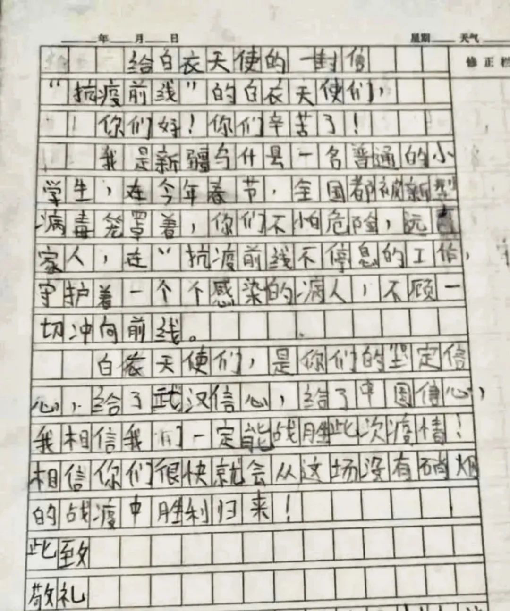 年 月 日 星期 天气
给白衣天使的一封信 修正栏
“抗疫前线”的白衣天使们,
你们好!你们辛苦了!
我是新疆乌什县一名普通的小
学生,在今年春节,全国都被新型
病毒笼罩着,你们不怕危险,远
家人,在“抗疫前线不停息的工作,
守护着一个个感染的病人,不顾一
切冲向前线。
白衣天使们,是你们的坚定信
心,给了武汉信心,给了中国信心,
我相信我们一定能战胜此次疫情!
相信你们很快就会从这场没有硝烟
的战疫中胜利归来!
此致
敬礼